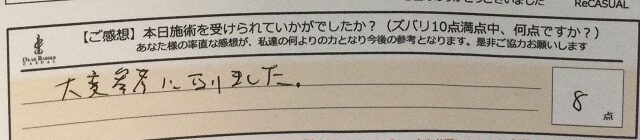 ReCASUAL
【ご感想】本日施術を受けられていかがでしたか？（ズバリ10点満点中、何点ですか？）
あなた様の率直な感想が、私達の何よりの力となり今後の参考となります。是非ご協力お願いします
大変参考になりました。
8点